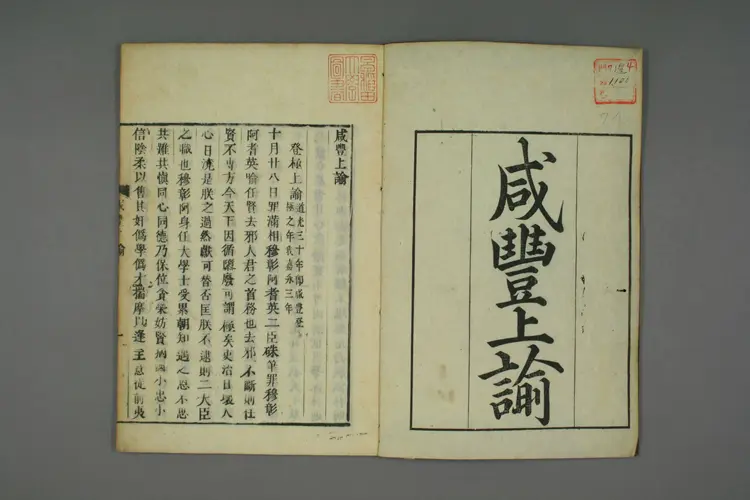 咸豐上諭
咸豐上諭
登極上諭道光三十年卽咸豐登極之年我嘉永三年
十月廿八日罪滿相穆彰阿耆英二臣硃筆罪穆彰
阿耆英喻任賢去邪人君之首務也去邪不斷則任
賢不專方今天下因循廢墮可謂極矣吏治日壞人
心日澆是朕之過然獻可替否匡朕不逮則二大臣
之職也穆彰阿身任大學士受累朝知遇之恩不思
其難其愼同心同德乃保位貪榮妨賢病國小忠小
信陰柔以售其奸僞學僞才揣摩以逢主意從前夷